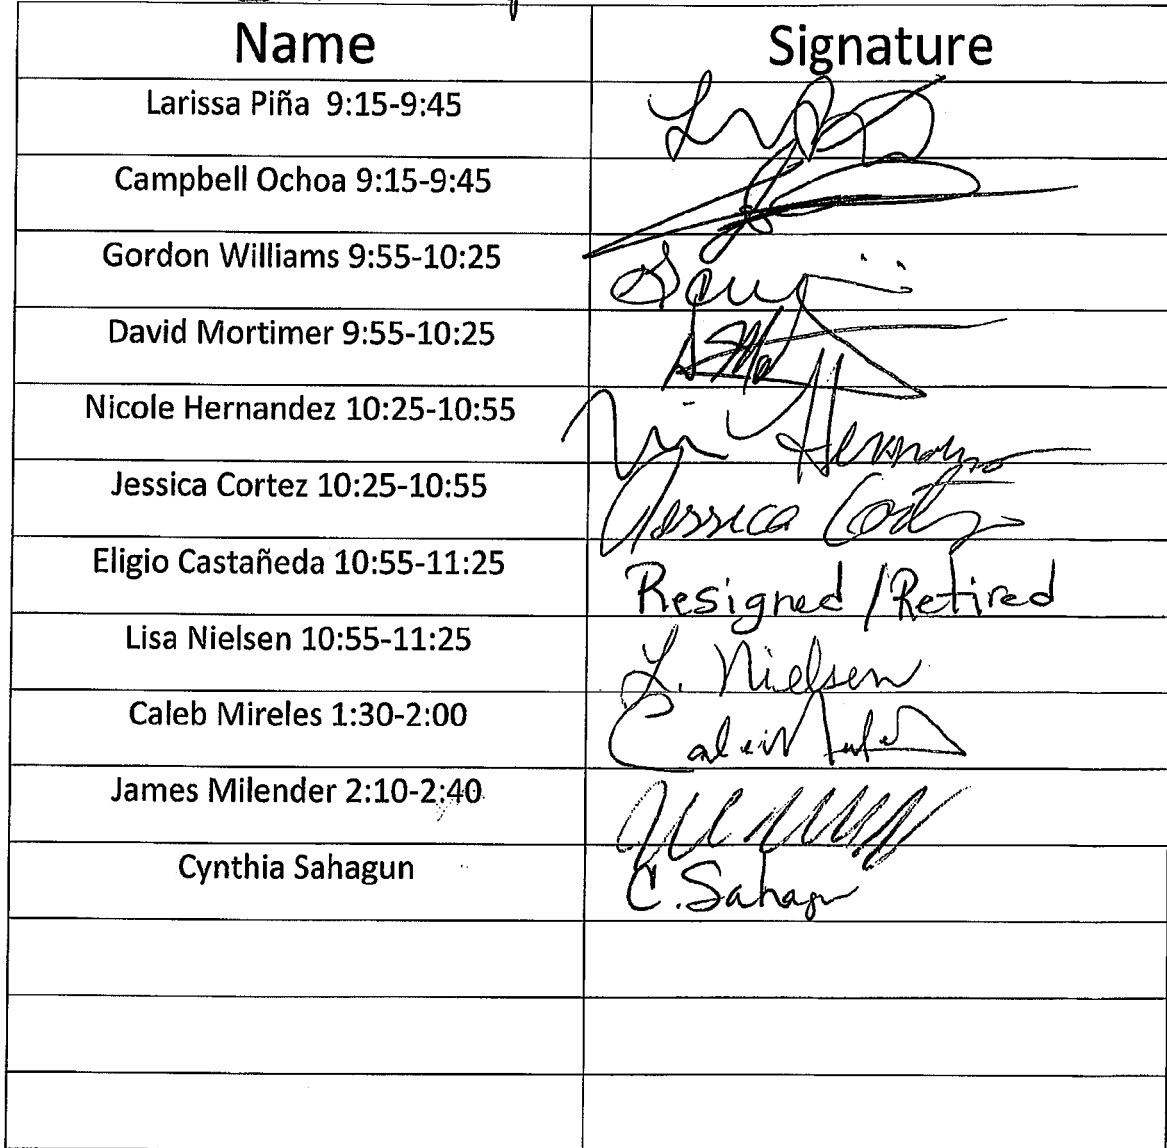 Name Signature
Larissa Piña 9:15-9:45
Campbell Ochoa 9:15-9:45
Gordon Williams 9:55-10:25
David Mortimer 9:55-10:25
Nicole Hernandez 10:25-10:55
Jessica Cortez 10:25-10:55 Jessica Cortez
Eligio Castañeda 10:55-11:25 Resigned / Retired
Lisa Nielsen 10:55-11:25 L. Nielsen
Caleb Mireles 1:30-2:00
James Milender 2:10-2:40
Cynthia Sahagun C. Sahagun